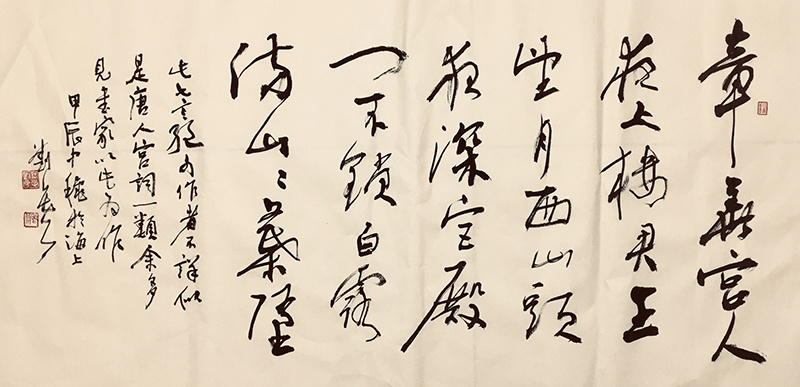 章華宮人
夜上樓君王
望月西山頭
夜深宮殿
门不鎖白露
满山〻葉墮
此七言絕作者不詳似
是唐人宮詞一類余多
見書家以此为作
甲辰中穐於海上
劉